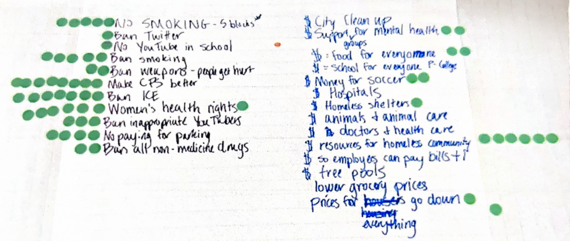 NO SMOKING - 5 blocks
Ban Twitter
No YouTube in school
Ban smoking
Ban weapons - people get hurt
Make CPS better
Ban ICE
Women's health rights
Ban inappropriate YouTubers
No paying for parking
Ban all non-medicine drugs
$ City Clean up
$ Support for mental health
groups
$ = food for everyone
$ = School for everyone P-College
$ Money for soccer
$ Hospitals
$ Homeless shelters
$ animals + animal care
$ doctors + health care
$ resources for homeless community
$ so employers can pay bills +
$ free pools
lower grocery prices
prices for go down
housing
everything